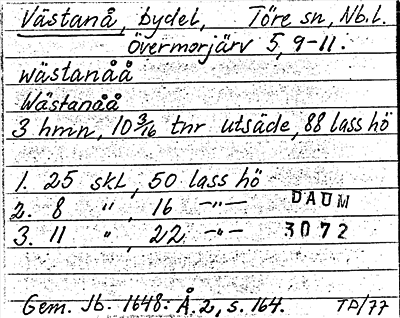 Västanå, bydel, Töre sn, Nb.l.
Övermorjärv 5, 9-11.
wästanåå
Wästanåå
3 hmn, 10 3/16 tnr utsäde, 88 lass hö
1. 25 skl, 50 lass hö
2. 8 " , 16 -"-
DAUM
3. 11 " , 22 -"-
3072
Gem. Jb. 1648: Å. 2, s. 164. TP/77